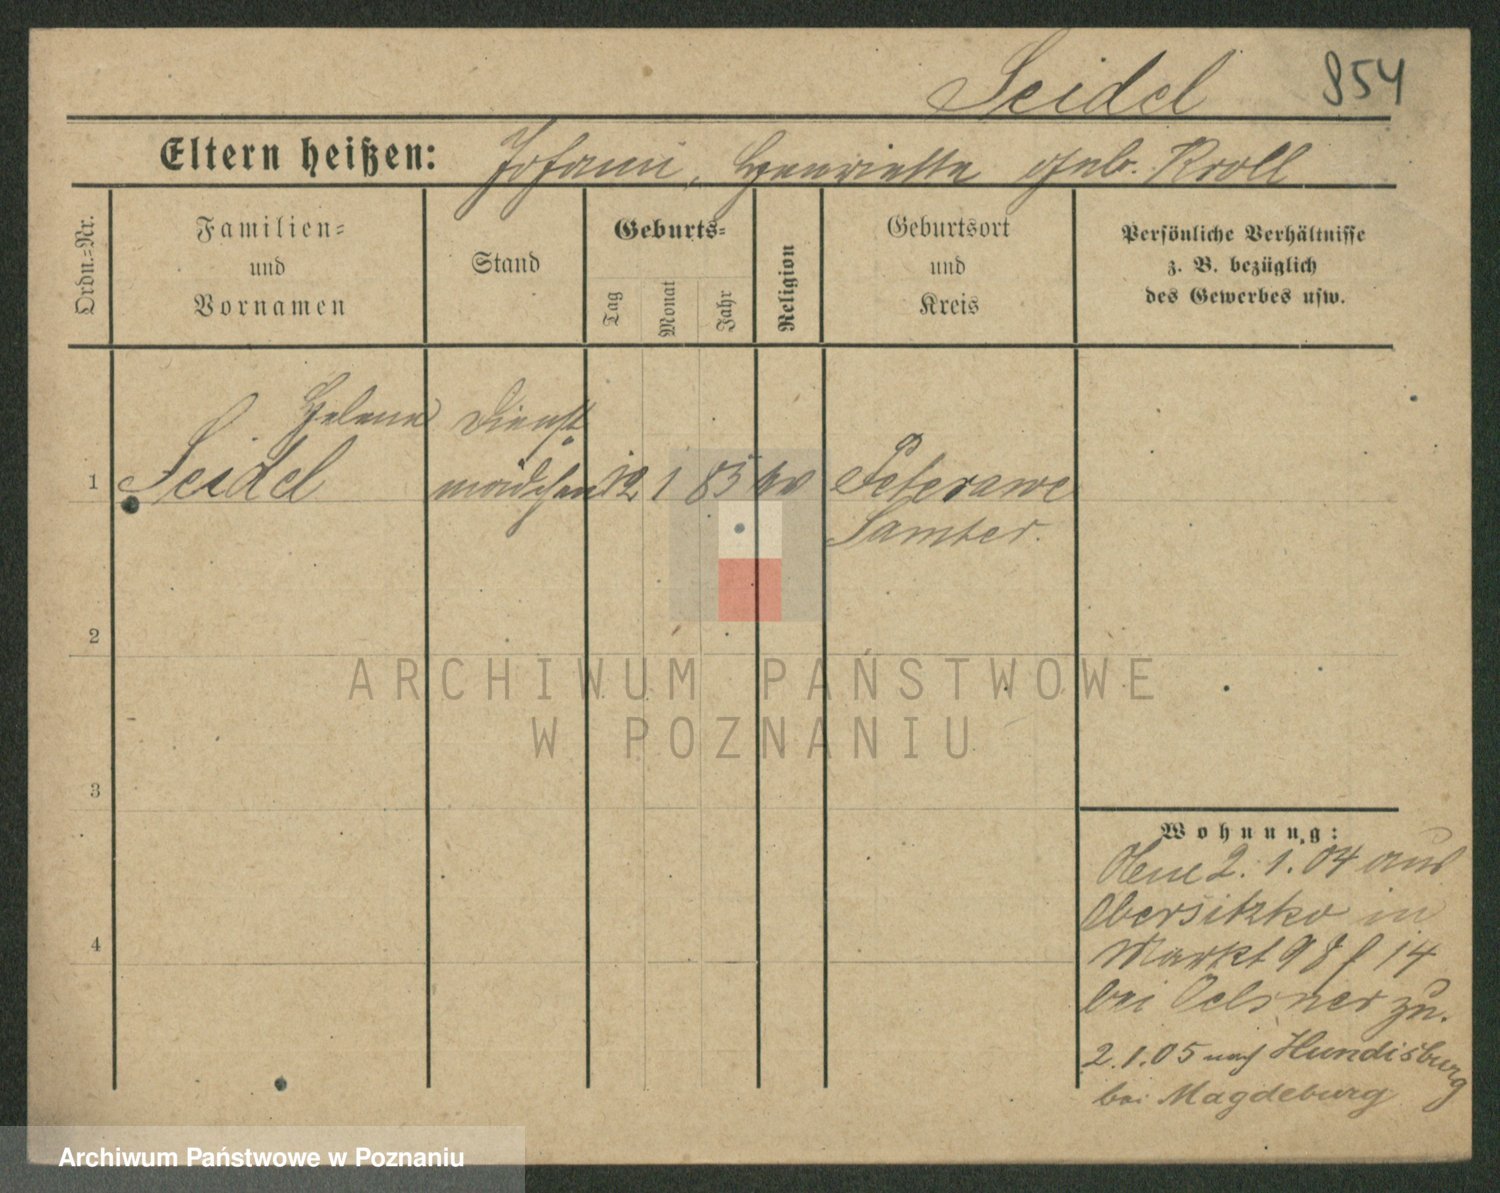 Seidel 854
Eltern heißen: Johann, Henriette geb. Kroll
Ordn.-Nr.
Familien-
und
Vornamen
Stand
Geburts-
Tag
Monat
Jahr
Religion
Geburtsort
und
Kreis
Persönliche Verhältnisse
z. B. bezüglich
des Gewerbes usw.
Helene Dienst
1 Seidel mädchen 12 1 85 ev Peterawe
Samter.
2
3
4
Wohnung:
2. 1. 04 aus
Obersitzko in
Markt 98 14
bei Oelsner zu.
2.1.05 nach Hundisburg
bei Magdeburg
ARCHIWUM PAŃSTWOWE
W POZNANIU
Archiwum Państwowe w Poznaniu